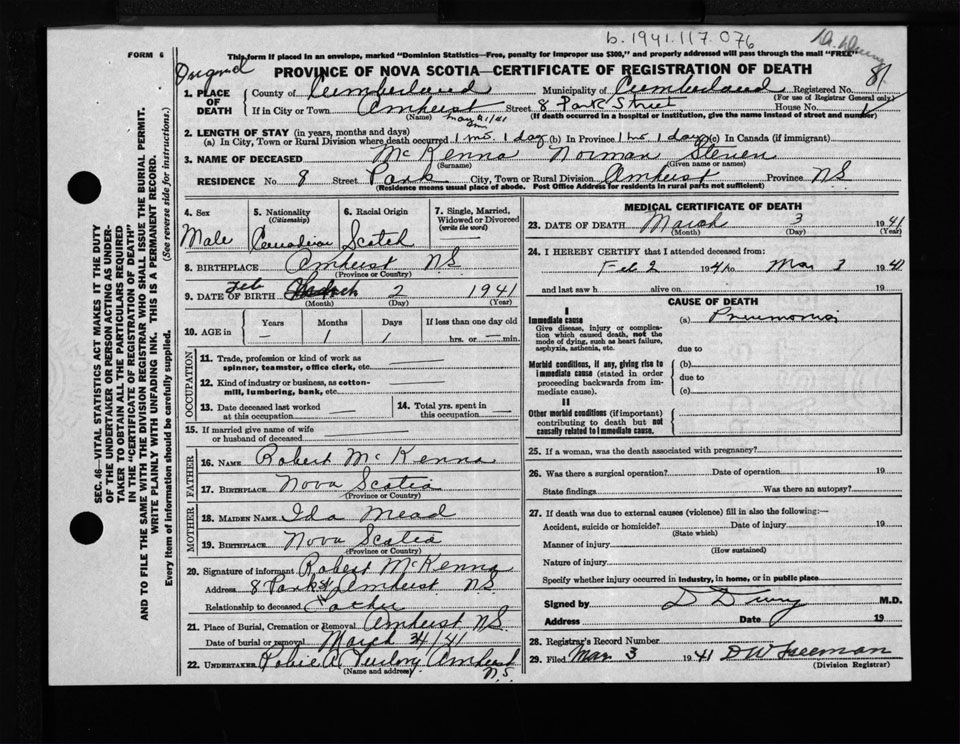 b. 1941.117.076
FORM 6
This form if placed in an envelope, marked "Dominion Statistics—Free, penalty for improper use $300," and properly addressed will pass through the mail "FREE"
Original
PROVINCE OF NOVA SCOTIA—CERTIFICATE OF REGISTRATION OF DEATH
81
1. PLACE OF DEATH
County of Cumberland Municipality of Cumberland Registered No.
(For use of Registrar General only)
If in City or Town Amherst Street 8 Park Street House No.
(Name) (If death occurred in a hospital or institution, give the name instead of street and number)
2. LENGTH OF STAY (in years, months and days)
(a) In City, Town or Rural Division where death occurred 1 mo. 1 day (b) In Province 1 mo. 1 day (c) In Canada (if immigrant)
3. NAME OF DECEASED McKenna Norman Steven
(Surname) (Given name or names)
RESIDENCE No 8 Street Park City, Town or Rural Division Amherst Province N.S.
(Residence means usual place of abode. Post Office Address for residents in rural parts not sufficient)
SEC. 46—VITAL STATISTICS ACT MAKES IT THE DUTY
OF THE UNDERTAKER OR PERSON ACTING AS UNDER-
TAKER TO OBTAIN ALL THE PARTICULARS REQUIRED
IN THE "CERTIFICATE OF REGISTRATION OF DEATH"
AND TO FILE THE SAME WITH THE DIVISION REGISTRAR WHO SHALL ISSUE THE BURIAL PERMIT.
WRITE PLAINLY WITH UNFADING INK. THIS IS A PERMANENT RECORD.
Every item of information should be carefully supplied. (See reverse side for instructions.)
4. Sex
Male
5. Nationality
(Citizenship)
Canadian
6. Racial Origin
Scotch
7. Single, Married,
Widowed or Divorced
(write the word)
8. BIRTHPLACE Amherst N.S.
(Province or Country)
9. DATE OF BIRTH Feb 2 1941
(Month) (Day) (Year)
10. AGE in
Years Months Days If less than one day old
— 1 1 hrs. or min.
OCCUPATION
11. Trade, profession or kind of work as
spinner, teamster, office clerk, etc.
12. Kind of industry or business, as cotton-
mill, lumbering, bank, etc.
13. Date deceased last worked
at this occupation
14. Total yrs. spent in
this occupation
15. If married give name of wife
or husband of deceased
FATHER
16. NAME Robert McKenna
17. BIRTHPLACE Nova Scotia
(Province or Country)
MOTHER
18. MAIDEN NAME Ida Mead
19. BIRTHPLACE Nova Scotia
(Province or Country)
20. Signature of informant Robert McKenna
Address 8 Park St Amherst N.S.
Relationship to deceased Father
21. Place of Burial, Cremation or Removal Amherst N.S.
Date of burial or removal March 4/41
22. UNDERTAKER Amherst
(Name and address) N.S.
MEDICAL CERTIFICATE OF DEATH
23. DATE OF DEATH March 3 1941
(Month) (Day) (Year)
24. I HEREBY CERTIFY that I attended deceased from:
Feb 2 1941 to Mar 3 1941
and last saw h alive on 19
CAUSE OF DEATH
I
Immediate cause
Give disease, injury or complica-
tion which caused death, not the
mode of dying, such as heart failure,
asphyxia, asthenia, etc.
(a) Pneumonia
due to
Morbid conditions, if any, giving rise to
immediate cause (stated in order
proceeding backwards from im-
mediate cause).
(b)
due to
(c)
II
Other morbid conditions (if important)
contributing to death but not
causally related to immediate cause.
25. If a woman, was the death associated with pregnancy?
26. Was there a surgical operation? Date of operation 19
State findings Was there an autopsy?
27. If death was due to external causes (violence) fill in also the following:—
Accident, suicide or homicide? Date of injury 19
(State which)
Manner of injury
(How sustained)
Nature of injury
Specify whether injury occurred in industry, in home, or in public place
Signed by M.D.
Address Date 19
28. Registrar's Record Number
29. Filed Mar 3 1941 D W Freeman
(Division Registrar)